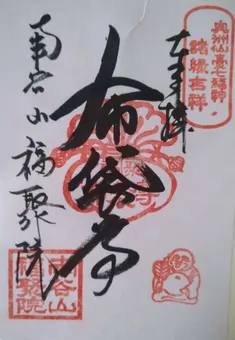 奥州仙臺七福神
諸縁吉祥
奉拝
布袋尊
南谷山福聚院
南谷山
福聚院